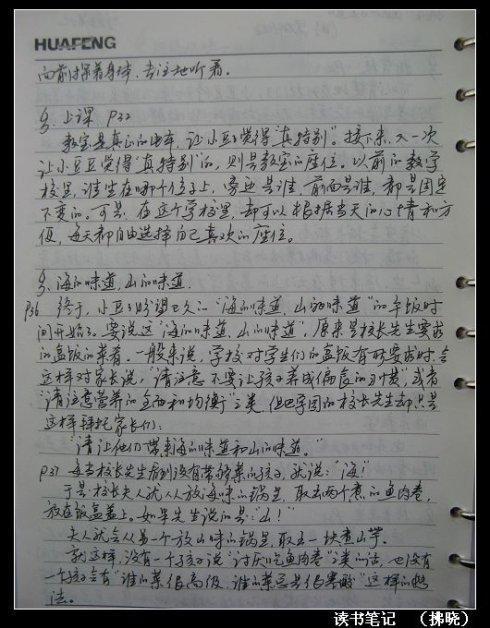 HUAFENG
向前探着身体，专注地听着。
§. 上课 P32
教室是真正的电车，让小豆豆觉得“真特别”。接下来，又一次
让小豆豆觉得“真特别”的，则是教室的座位。以前的教学
校里，谁坐在哪个位子上，旁边是谁，前面是谁，都是固定
不变的。可是，在这个学校里，却可以根据当天的心情和方
便，每天都自由选择自己喜欢的座位。
§. 海的味道，山的味道．
P36 终于，小豆豆盼望已久的“海的味道、山的味道”的午饭时
间开始了。要说这“海的味道、山的味道”，原来是校长先生要求
的盒饭的菜肴。一般来说，学校对学生们的盒饭有所要求时，会
这样对家长说，“请注意不要让孩子养成偏食的习惯”或者
“请注意营养的全面和均衡”之类，但巴学园的校长先生却只是
这样拜托家长们：
“请让他们带来海的味道和山的味道。”
P37 每当校长先生看到没有带够菜的孩子，就说：“海！”
于是校长夫人就从放海味的锅里，取出两个煮的鱼肉卷，
放在饭盒盖上。如果先生说的是：“山！”
夫人就会从另一个放山味的锅里，取出一块煮山芋。
就这样，没有一个孩子说“讨厌吃鱼肉卷”之类的话，也没有
一个孩子会有“谁的菜很高级，谁的菜总是很寒酸”这样的想
法。
读书笔记 （拂晓）